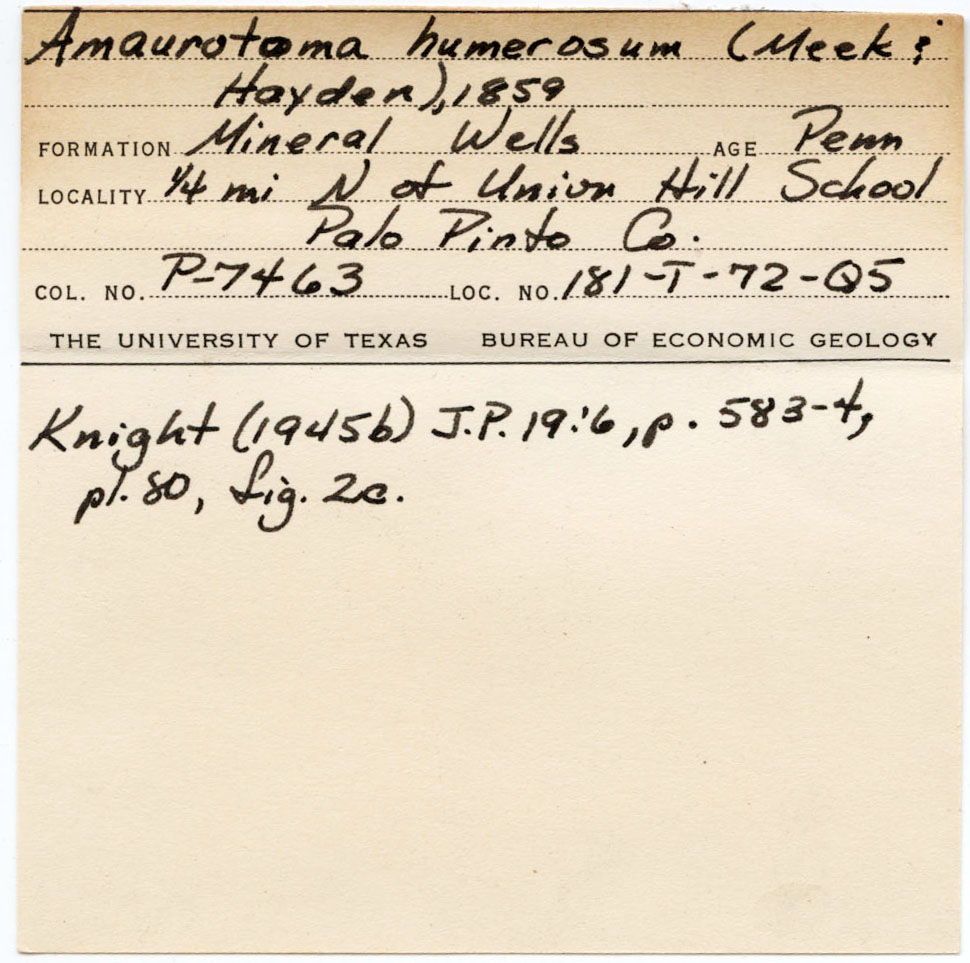 Amaurotoma humerosum (Meek &
Hayden), 1859
FORMATION Mineral Wells AGE Penn
LOCALITY 1/4 mi N of Union Hill School
Palo Pinto Co.
COL. NO. P-7463 LOC. NO. 181-T-72-Q5
THE UNIVERSITY OF TEXAS BUREAU OF ECONOMIC GEOLOGY
Knight (1945b) J.P. 19:6, p. 583-4,
pl. 80, fig. 2c.